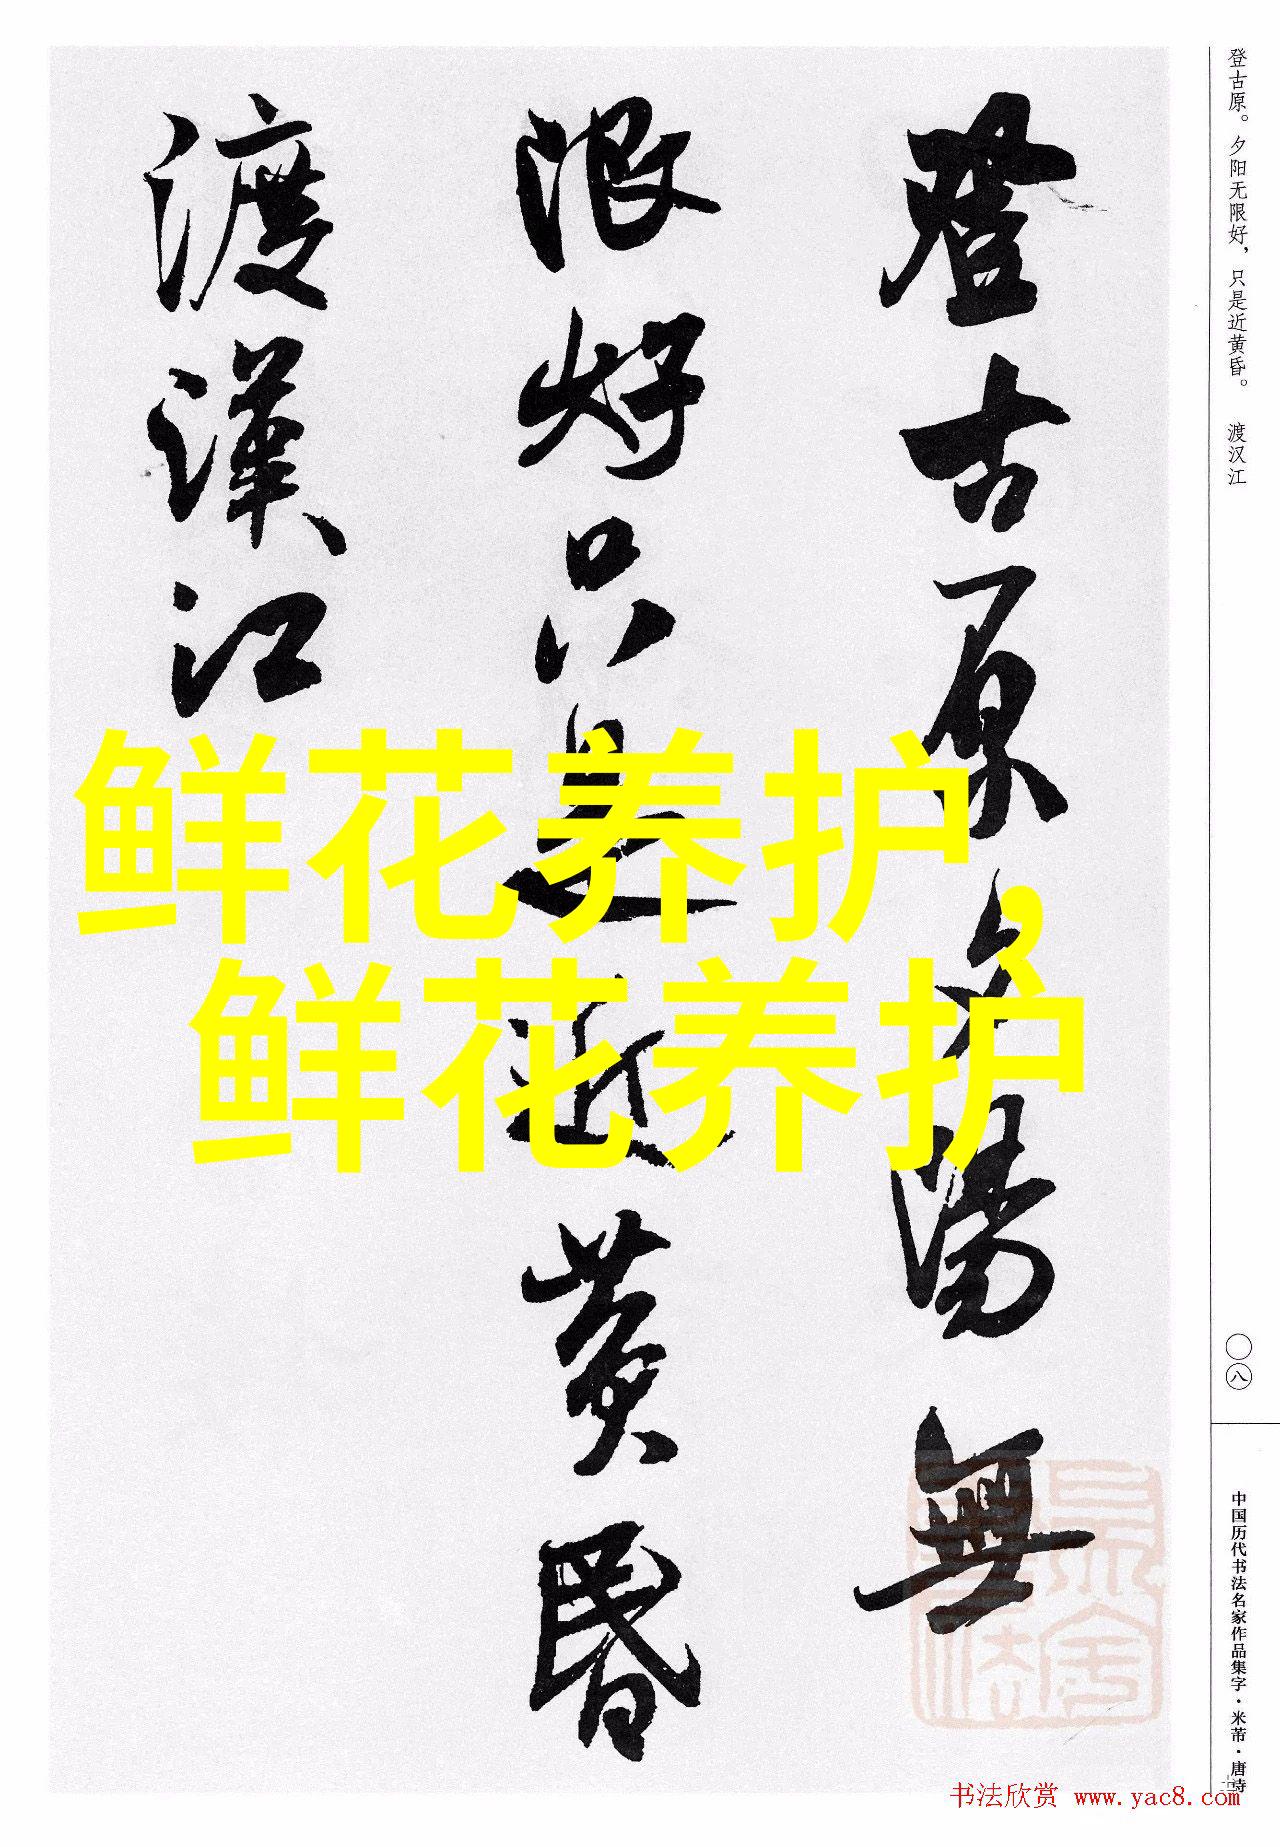 登古原。夕阳无限好，只是近黄昏。 渡汉江
登古原夕陽無
限好只是近黄昏
渡漢江
鲜花养护,
鲜花养护
〇八
中国历代书法名家作品集字·米芾·唐诗
书法欣赏 www.yac8.com